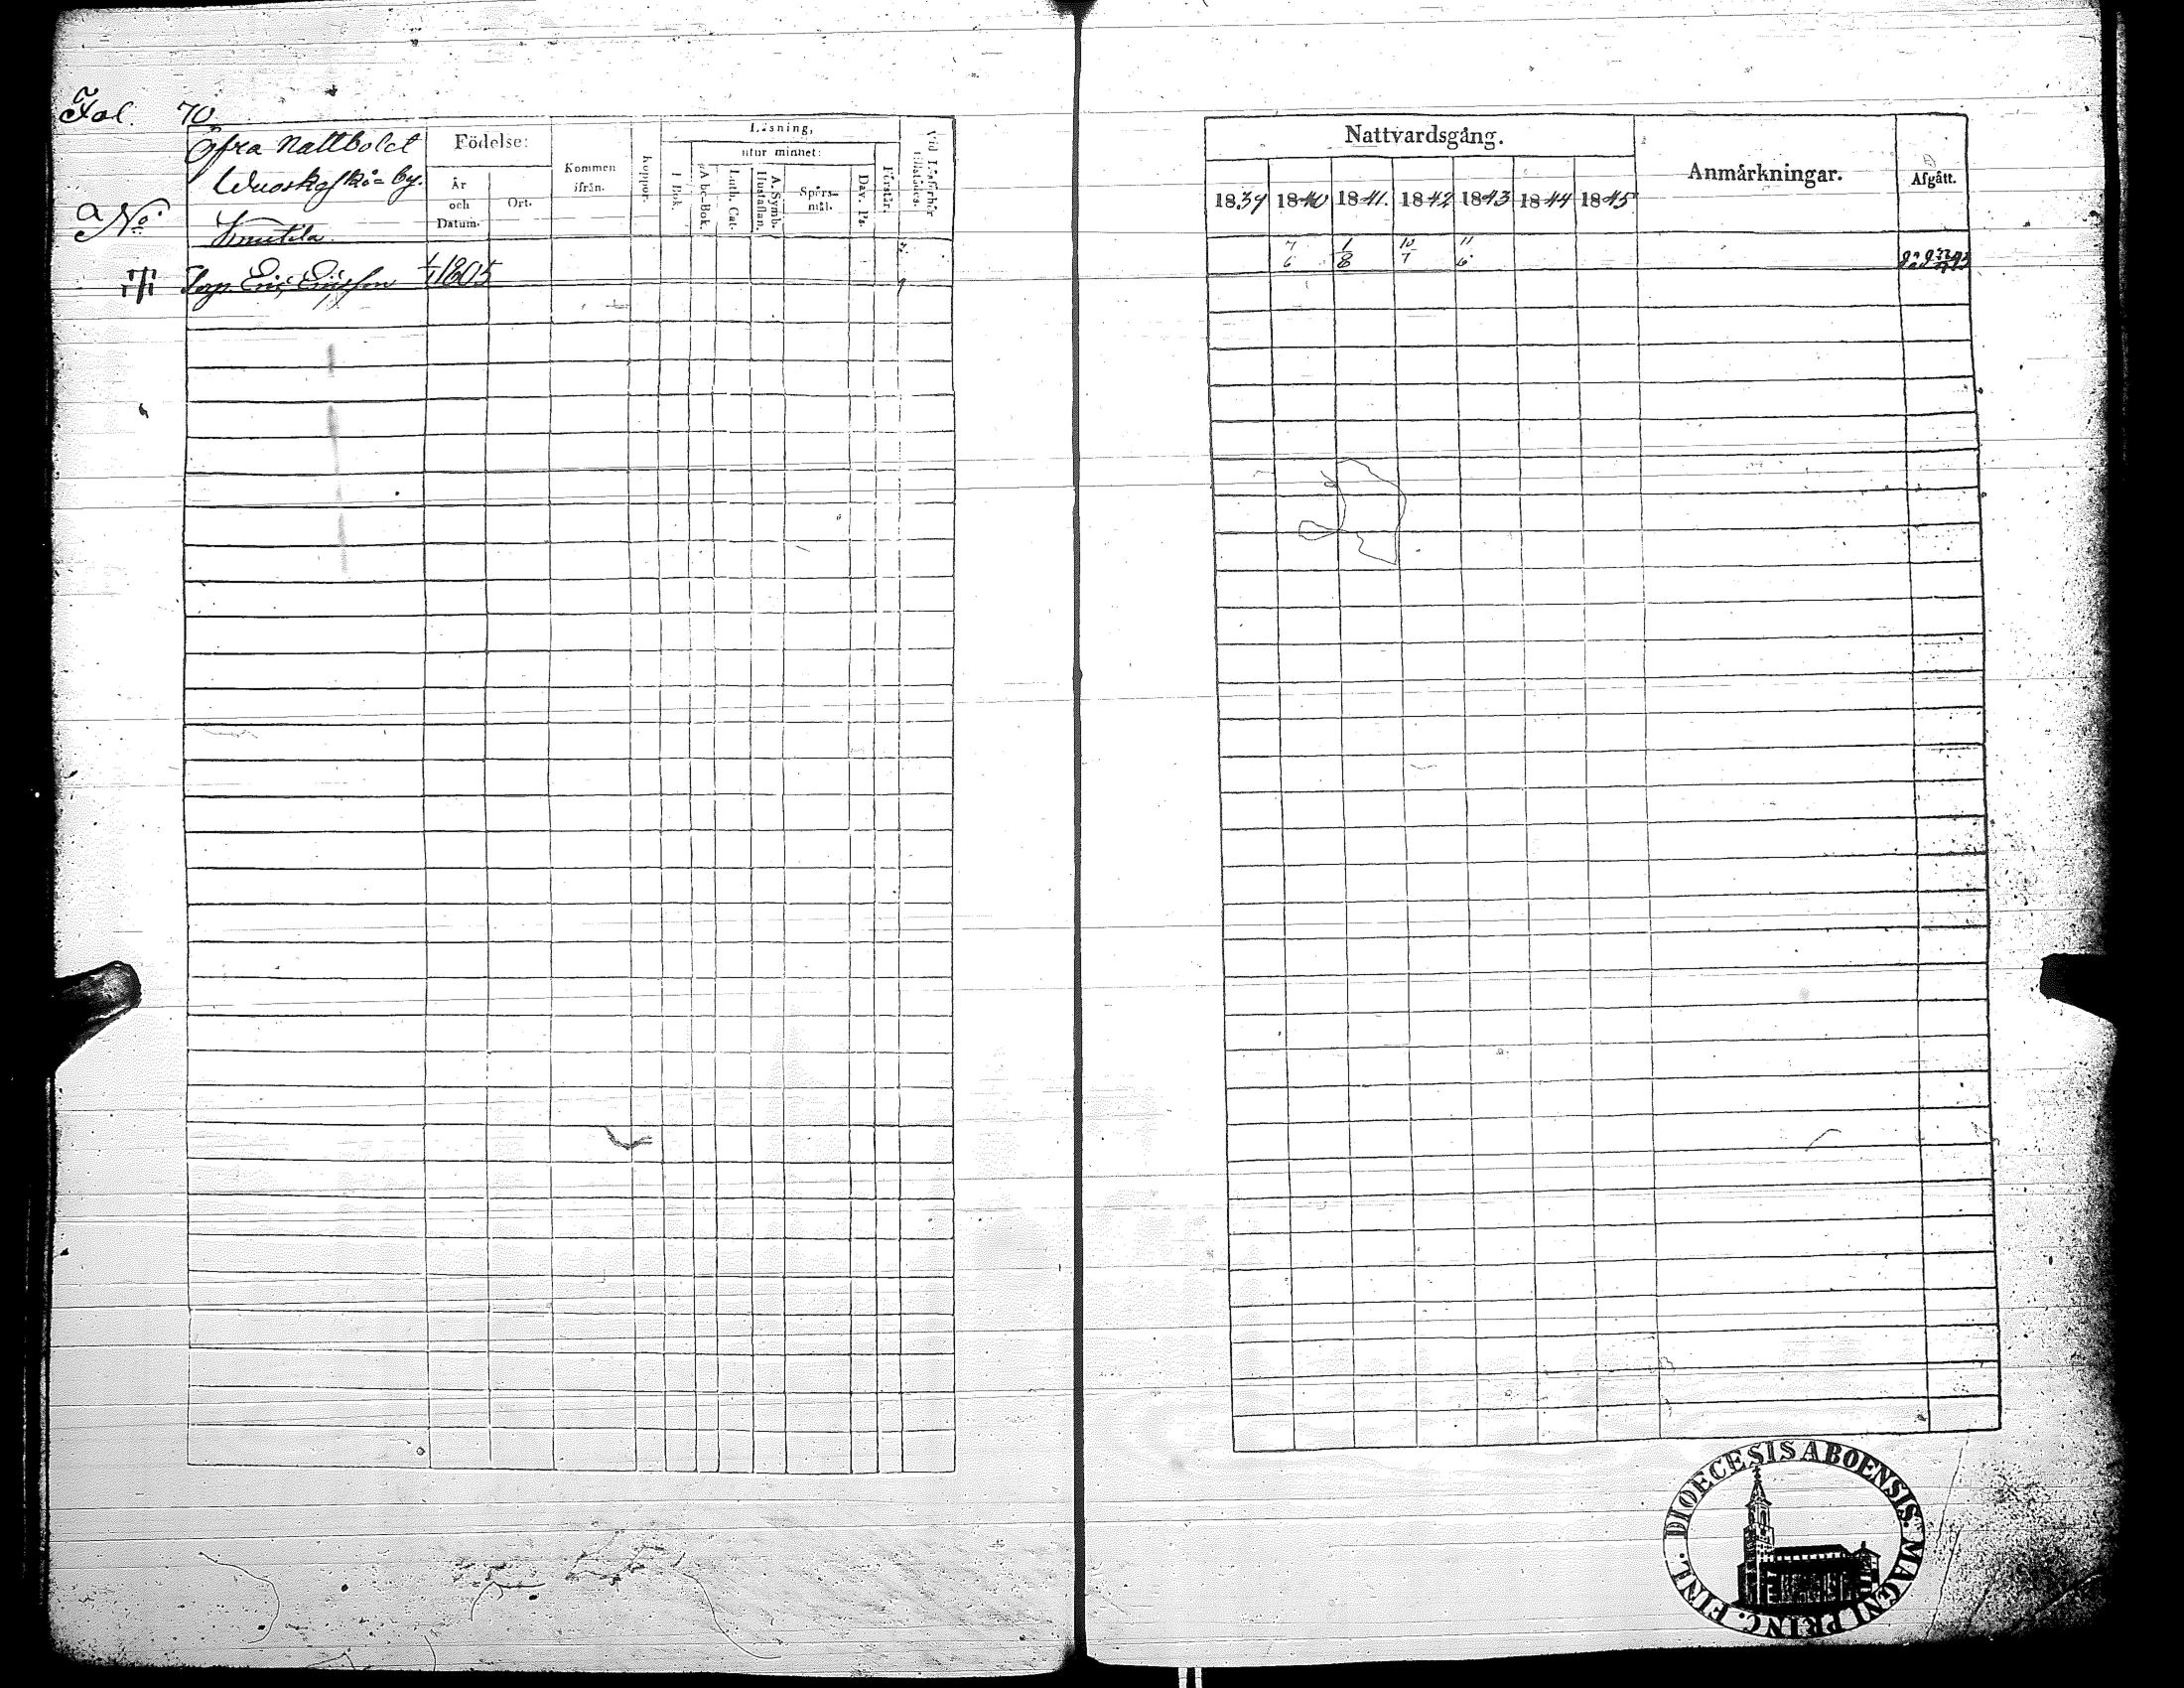 Fol. 70
Öfra Nattbolct
by.
a No.
Knutila
Torp. Eric Ericsson 1/1 1805
Födelse:
År och Datum.
Ort.
Kommen ifrån.
Koppor.
Läsning,
utur minnet:
I Bok.
Abc-Bok.
Luth. Cat.
A. Symb. Hustaflan.
Spörs-mål.
Dav. Ps.
Förstår.
Vid Läseförhör tillstädes.
Nattvardsgång.
1839 1840 1841. 1842 1843 1844 1845
Anmärkningar.
Afgått.
7/6 1/8 10/7 11/6
DIOECESIS ABOENSIS. MAGNI PRINC. FINL.